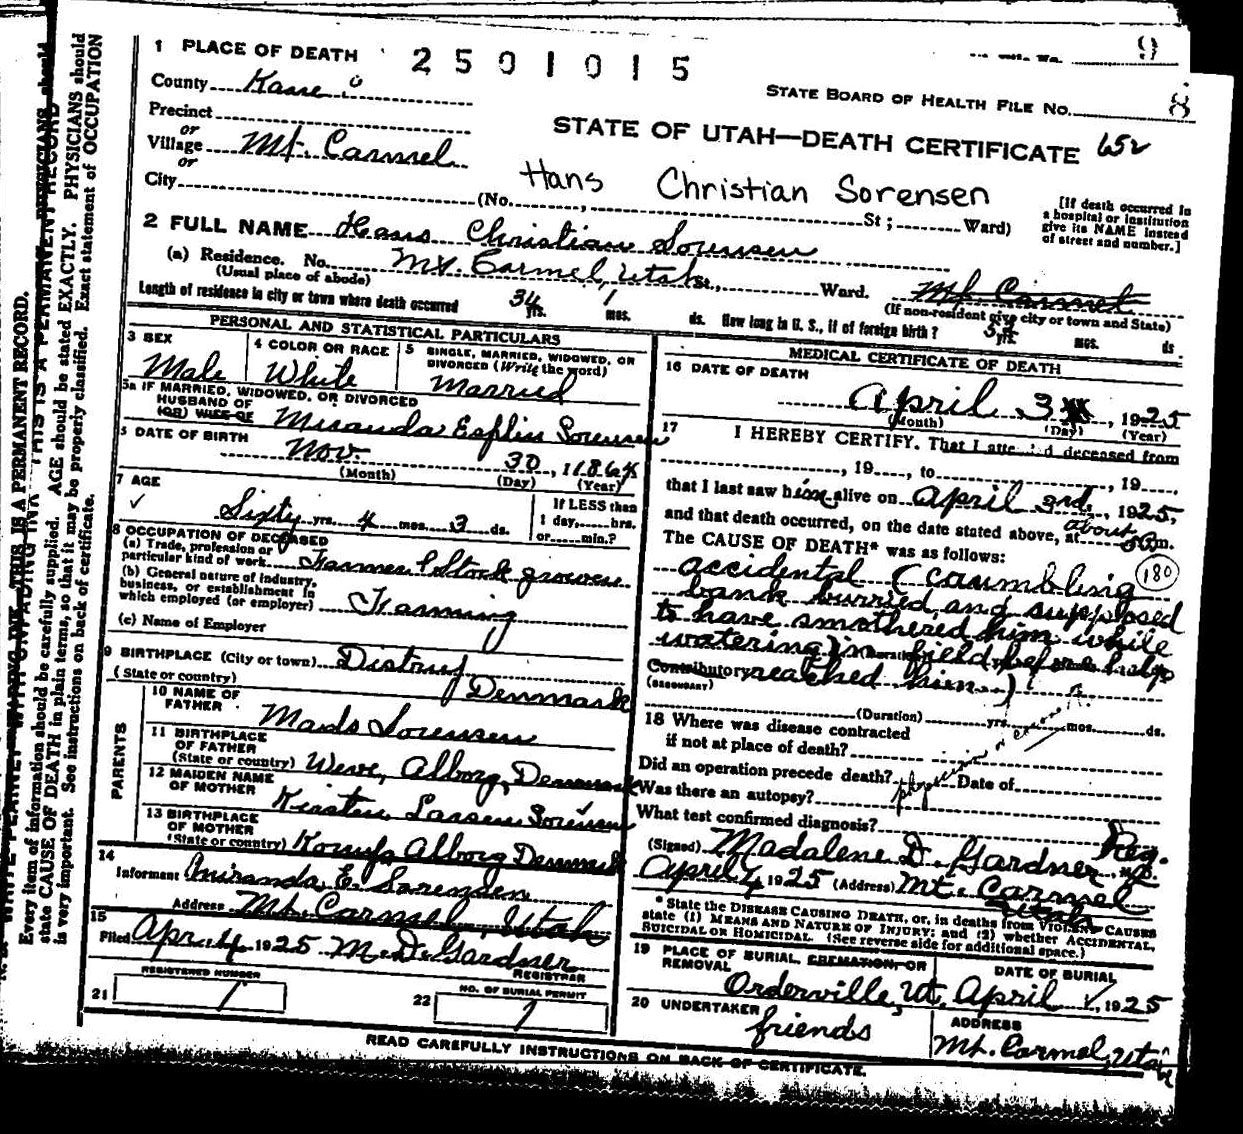 9
1 PLACE OF DEATH 2501015
STATE BOARD OF HEALTH FILE No. 8
County Kane
Precinct
or
Village Mt. Carmel
or
City
STATE OF UTAH—DEATH CERTIFICATE 652
Hans Christian Sorensen
(No. , St ; Ward)
[If death occurred in
a hospital or institution
give its NAME instead
of street and number.]
2 FULL NAME Hans Christian Sorensen
(a) Residence. No. Mt. Carmel, Utah St., Ward. Mt Carmel
(Usual place of abode) (If non-resident give city or town and State)
Length of residence in city or town where death occurred 34 yrs. 1 mos. ds. How long in U. S., if of foreign birth? yrs. mos. ds
PERSONAL AND STATISTICAL PARTICULARS
3 SEX Male
4 COLOR OR RACE White
5 SINGLE, MARRIED, WIDOWED, OR
DIVORCED (Write the word)
Married
5a IF MARRIED, WIDOWED, OR DIVORCED
HUSBAND OF
(OR) WIFE OF Miranda Esplin Sorensen
DATE OF BIRTH
Nov. 30, 1864
(Month) (Day) (Year)
7 AGE
Sixty yrs. 4 mos. 3 ds.
If LESS than
1 day, hrs.
or min.?
8 OCCUPATION OF DECEASED
(a) Trade, profession or
particular kind of work Farmer & Stock grower
(b) General nature of industry,
business, or establishment in
which employed (or employer) Farming
(c) Name of Employer
9 BIRTHPLACE (City or town)
(State or country) Denmark
PARENTS
10 NAME OF
FATHER Mads Sorensen
11 BIRTHPLACE
OF FATHER
(State or country) Alborg, Denmark
12 MAIDEN NAME
OF MOTHER Kirstin Larsen Sorensen
13 BIRTHPLACE
OF MOTHER
(State or country) Alborg Denmark
14
Informant Miranda E. Sorensen
Address Mt. Carmel, Utah
15
Filed Apr. 4 1925 M. D. Gardner
REGISTRAR
21 REGISTERED NUMBER 1
22 NO. OF BURIAL PERMIT 1
MEDICAL CERTIFICATE OF DEATH
16 DATE OF DEATH
April 3, 1925
(Month) (Day) (Year)
17 I HEREBY CERTIFY, That I attended deceased from
, 19 , to , 19
that I last saw him alive on April 3rd, 1925,
and that death occurred, on the date stated above, at about m.
The CAUSE OF DEATH* was as follows:
accidental (caumbling 180
bank burried and supposed
to have smothered him while
watering in field before help
Contributory reached him.)
(SECONDARY)
(Duration) yrs. mos. ds.
18 Where was disease contracted
if not at place of death?
Did an operation precede death? Date of
Was there an autopsy? physician
What test confirmed diagnosis?
(Signed) Madalene D. Gardner Reg.
April 4 1925 (Address) Mt. Carmel
Utah
* State the DISEASE CAUSING DEATH, or, in deaths from VIOLENT CAUSES
state (1) MEANS AND NATURE OF INJURY; and (2) whether ACCIDENTAL,
SUICIDAL OR HOMICIDAL. (See reverse side for additional space.)
19 PLACE OF BURIAL, CREMATION, OR
REMOVAL
Orderville, Ut.
DATE OF BURIAL
April 1925
20 UNDERTAKER
friends
ADDRESS
Mt. Carmel, Utah
READ CAREFULLY INSTRUCTIONS ON BACK OF CERTIFICATE.
WRITE PLAINLY WITH UNFADING INK THIS IS A PERMANENT RECORD.
Every item of information should be carefully supplied. AGE should be stated EXACTLY. PHYSICIANS should
state CAUSE OF DEATH in plain terms, so that it may be properly classified. Exact statement of OCCUPATION
is very important. See instructions on back of certificate.